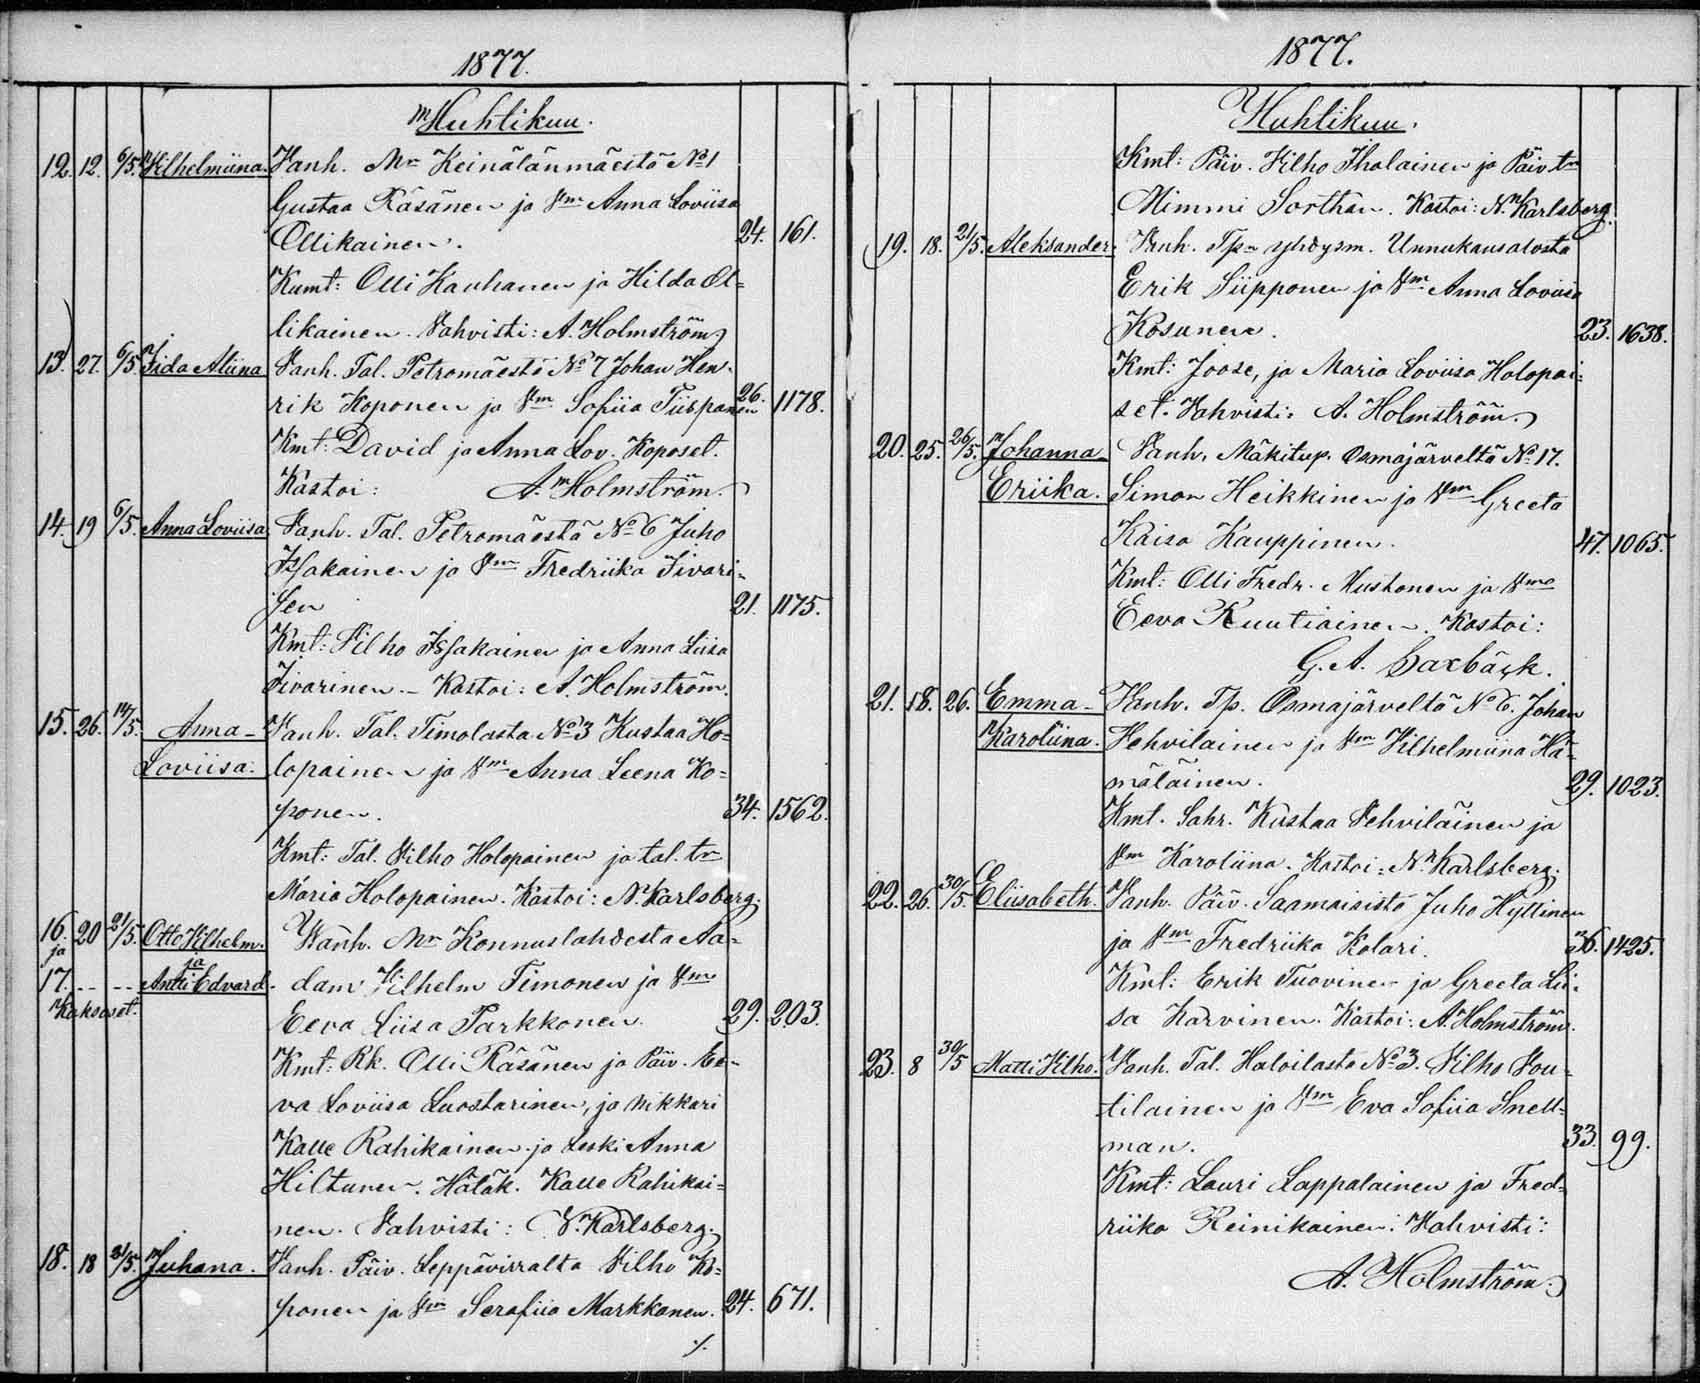 1877.
Huhtikuu.
12. 12. 6/5. Vilhelmiina. Vanh. Mr Keinälänmäestä No 1
Gustaa Räsänen ja Vm Anna Loviisa
Ollikainen. 24. 161.
Kumt: Olli Kauhanen ja Hilda Ol=
likainen. Vahvisti: A. Holmström.
13. 27. 6/5. Iida Aliina Vanh. Tal. Petromäestä No 7 Johan Hen-
rik Koponen ja Vm Sofiia Tiispanen 26. 1178.
Kmt: David ja Anna Lov. Koposet.
Kastoi: A. Holmström.
14. 19 6/5. Anna Loviisa Vanh. Tal. Petromäestä No 6 Juho
Issakainen ja Vm Fredriika Iivari-
sen 21. 1175.
Kmt: Vilho Issakainen ja Anna Liisa
Iivarinen. – Kastoi: A. Holmström.
15. 26. 14/5. Anna- Vanh. Tal. Timolasta No 3 Kustaa Ho=
Loviisa. lopainen ja Vm Anna Leena Ko=
ponen. 34. 1562.
Kmt: Tal. Vilho Holopainen ja tal. tr
Maria Holopainen. Kastoi: N. Karlsberg.
16. 20 21/5. Otto Vilhelm. Wanh. Mr Konnuslahdesta Aa=
ja ja
17. - - - - Antti Edvard. dam Vilhelm Timonen ja Vm
Kaksoset. Eeva Liisa Parkkonen. 29. 203.
Kmt: Rk. Olli Räsänen ja Päiv. Ee-
va Loviisa Luostarinen, ja nikkari
Kalle Rahikainen ja Leski Anna
Hiltunen. Hätäk. Kalle Rahikai=
nen. Vahvisti: N. Karlsberg.
18. 18 21/5. Juhana. Vanh. Päiv. Leppävirralta Vilho Ko=
ponen ja Vm Serafiia Markkanen. 24. 671.
./.
1877.
Huhtikuu.
Kmt: Päiv. Vilho Iholainen ja Päiv. tr
Mimmi Sorthan. Kastoi: N. Karlsberg.
19. 18. 21/5. Aleksander. Vanh. Tp. yhdysm. Unnukansalosta
Erik Siipponen ja Vm Anna Loviisa
Kosunen. 23. 1638.
Kmt: Joose, ja Maria Loviisa Holopai=
set. Vahvisti: A. Holmström.
20. 25. 26/5. Johanna- Vanh. Mäkitup. Osmajärveltä No 17.
Eriika. Simon Heikkinen ja Vm Greeta
Kaisa Kauppinen. 47. 1065.
Kmt: Olli Fredr. Mustonen ja Vmo
Eeva Ruutiainen. Kastoi:
G. A. Saxbäck.
21. 18. 26. Emma- Vanh. Tp. Osmajärveltä No 6. Johan
Karoliina. Vehviläinen ja Vm Vilhelmiina Hä-
mäläinen. 29. 1023.
Kmt. Sahr. Kustaa Vehviläinen ja
Vm Karoliina. Kastoi: N. Karlsberg.
22. 26. 30/5. Eliisabeth. Vanh. Päiv. Saamaisista Juho Hyttinen
ja Vm Fredriika Kolari. 36. 1425.
Kmt: Erik Tuovinen ja Greeta Lii-
sa Karvinen. Kastoi: A. Holmström.
23. 8 30/5 Matti Vilho. Vanh. Tal. Haloilasta No 3. Vilho Vou-
tilainen ja Vm Eva Sofiia Snell=
man. 33. 99.
Kmt: Lauri Lappalainen ja Fred=
riika Reinikainen. Vahvisti:
A. Holmström.